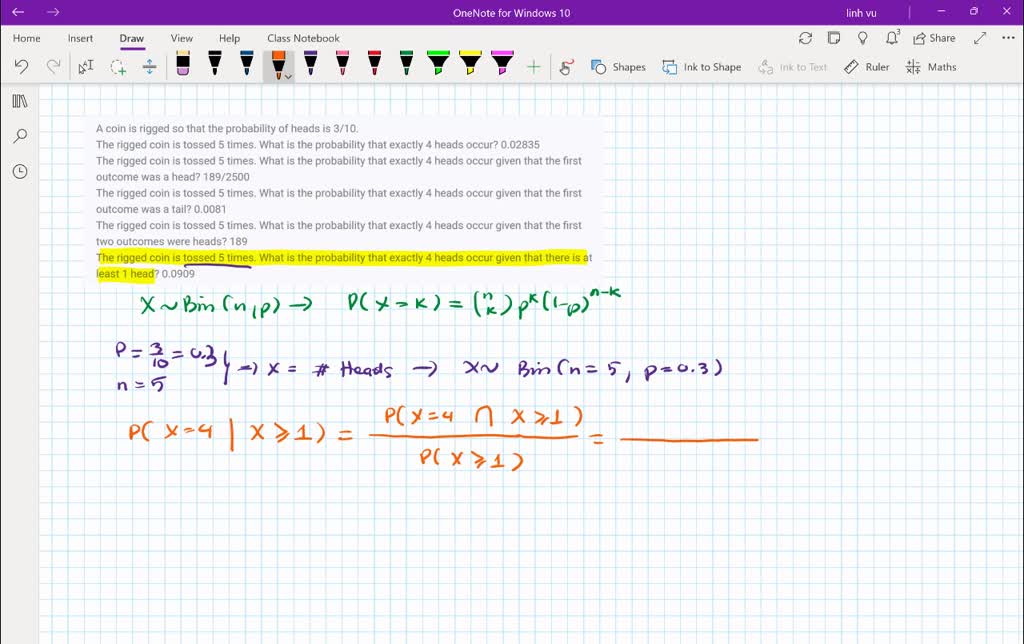 OneNote for Windows 10
linh vu
Home Insert Draw View Help Class Notebook
3
Share
Shapes Ink to Shape Ink to Text Ruler Maths
A coin is rigged so that the probability of heads is 3/10.
The rigged coin is tossed 5 times. What is the probability that exactly 4 heads occur? 0.02835
The rigged coin is tossed 5 times. What is the probability that exactly 4 heads occur given that the first
outcome was a head? 189/2500
The rigged coin is tossed 5 times. What is the probability that exactly 4 heads occur given that the first
outcome was a tail? 0.0081
The rigged coin is tossed 5 times. What is the probability that exactly 4 heads occur given that the first
two outcomes were heads? 189
The rigged coin is tossed 5 times. What is the probability that exactly 4 heads occur given that there is at
least 1 head? 0.0909
X ~ Bin (n, p) → P(X = k) = (n k) p^k (1-p)^n-k
p = 3/10 = 0.3
n = 5
} => X = # Heads → X ~ Bin (n = 5, p = 0.3)
P( X = 4 | X ⩾ 1) = P(X = 4 ∩ X ⩾ 1) / P( X ⩾ 1) =